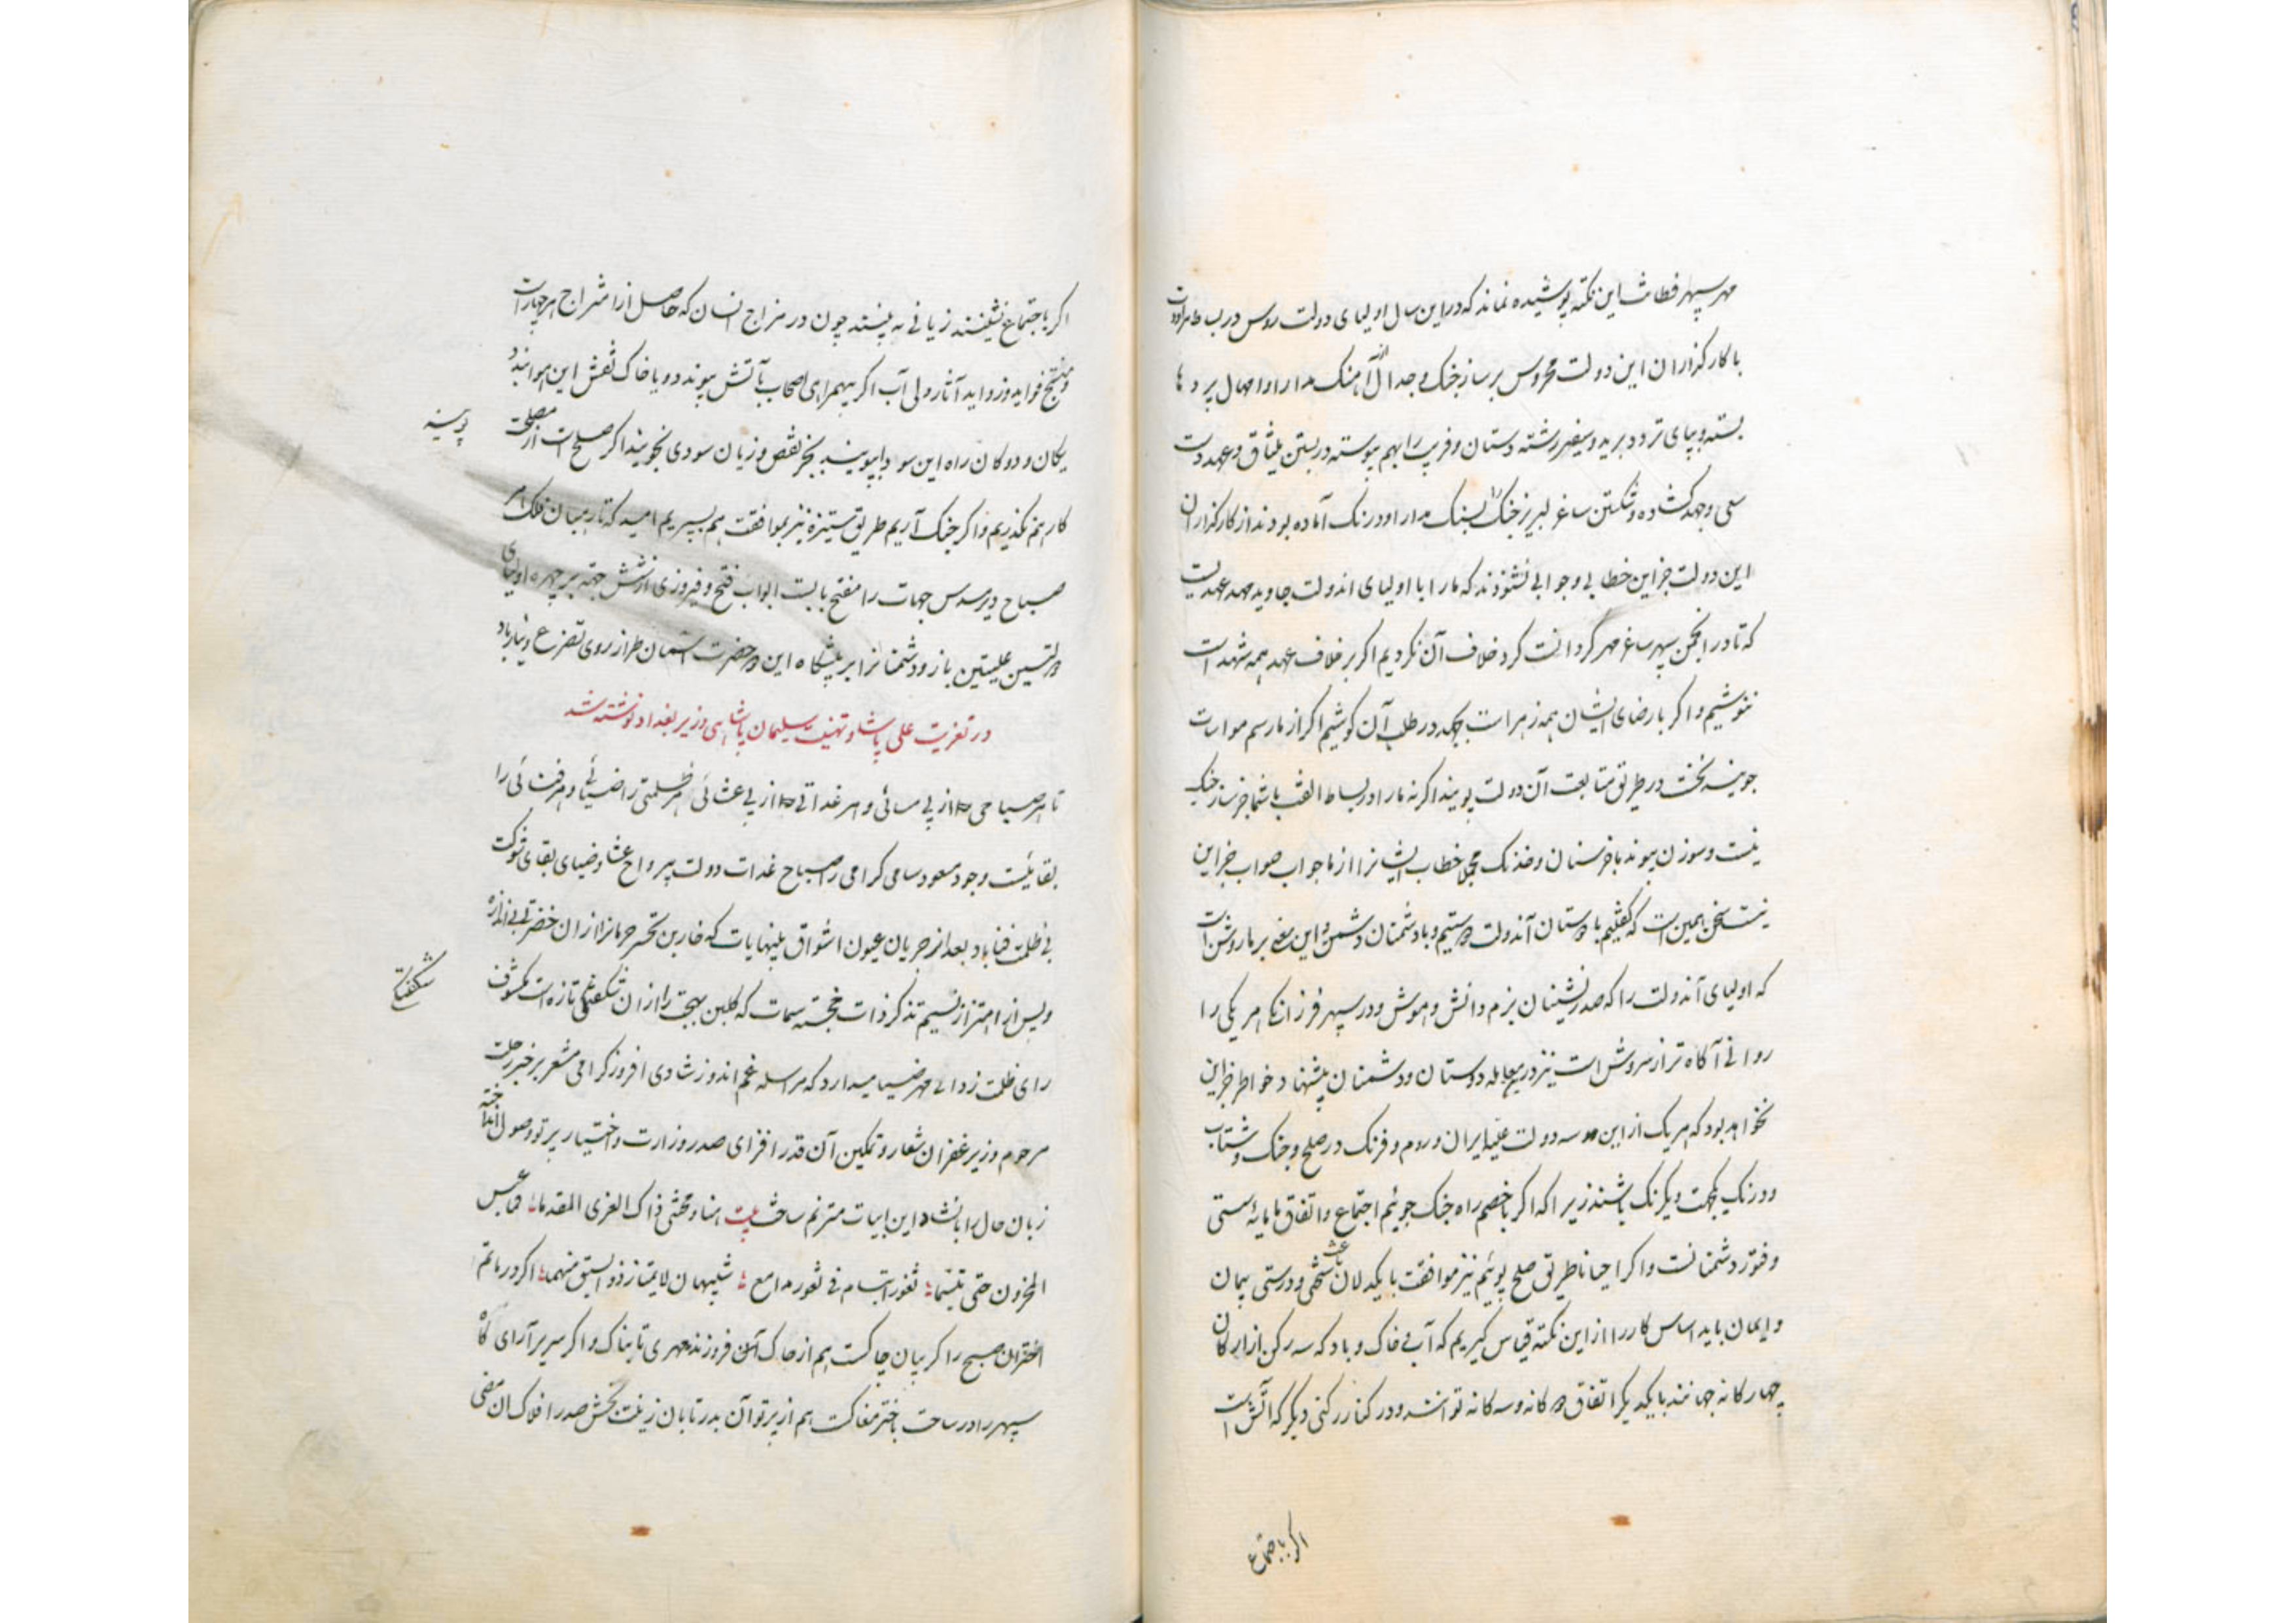 مهر سپهر فطانت این نکته پوشیده نماند که در این سال اولیای دولت روس در بساط مراودت
با کارگذاران این دولت محروس بر ساز جنگ و جدال آهنگ مدارا و امهال پرد ها
بسته و بپای تردد برید و سفیر رشته دستان و فریب را بهم پیوسته در بستن میثاق و عهد دست
سعی و جهد گشاده و شکستن ساغر لبریز جنگ را بسنگ مدارا و درنگ آماده بودند از کارگذاران
این دولت جز این خطابی و جوابی نشنودند که ما را با اولیای اندولت جاوید مهد عهدیست
که تا در انجمن سپهر ساغر مهر گردانست گرد خلاف آن نکردیم اگر بر خلاف عهد همه شهد است
ننوشیم و اگر با رضای ایشان همه زهر است بجهد در طلب آن کوشیم اگر از ما رسم مواسات
جویند نخست در طریق متابعت آن دولت پویند اگر نه ما را در بساط الفت با شما جز ساز جنگ
نیست و سوزن پیوند با خرمنان و خدنک مجملا خطاب ایشانرا از ما جواب صواب جز این
نیست سخن همین است که گفتیم با دوستان آندولت دوستیم و با دشمنان دشمن و این معنی بر ما روشن است
که اولیای آندولت را که صدرنشینان بزم دانش و هوش و در سپهر فرزانگی هر یکی را
روانی آگاه تر از سروش است نیز در معامله دوستان و دشمنان پیشنهاد خواطر جز این
نخواهد بود که هر یک از این سه دولت علیه ایران و روم و فرنگ در صلح و جنگ و شتاب
و درنگ یکجهت و یکرنگ باشند زیرا که اگر با خصم راه جنگ جوئیم اجتماع و اتفاق ما مایه سستی
و فتور دشمنانست و اگر احیانا طریق صلح پوئیم نیز موافقت با یکدلان باعث سختی و درستی پیمان
و ایمان باید اساس کار را از این نکته قیاس گیریم که آب و خاک و باد که سه رکن از ارکان
چهارگانه جهانند با یکدیگر اتفاق دوگانه و سه گانه توانند و در کنار رکنی دیگر که آتش است
اگر باجتماع
اگر باجتماع نشینند زیانی نه بینند چون در مزاج انسان که حاصل از امتزاج هر چهار است
و منتج فواید و زواید آثار ولی آب اگر بهمراهی اصحاب بآتش پیوندد و یا خاک نقش این موانید
یکان و دوگان راه این سودا پویند بجز نقص و زیان سودی نجویند اگر صلح است از مصلحت
پویند
کار هم نگذریم و اگر جنگ آریم طریق ستیزه نیز بموافقت هم بسپریم امید که تا در میان فلک هر
صباح دیر مسدس جهات را مفتح بابست ابواب فتح و فیروزی از شش جهة بر چهره اولیای
دولتین علیتین باز و دشمنانرا بر پیشگاه این دو حضرت آسمان طراز روی تضرع و نیاز باد
در تعزیت علی پاشا و تهنیت سلیمان پاشای وزیر بغداد نوشته شد
تا هر صباحی را از پی مسائی و هر غداتی را از پی عشائی هر ظلمتی را ضیائی و هر فنائی را
بقائیست وجود مسعود سامی گرامی را صباح غدات دولت بی رواح عشا و ضیای بقای شوکت
بی ظلمت فنا باد بعد از جریان عیون اشواق بینهایات که خاربن تحسر حرمانرا از ان خضرتی بی اندازه
و پس از اهتزاز نسیم تذکر ذات خجسته سمات که گلبن بهجت را از ان شکفتگی تازه است مکشوف
شکفتگی
رای ظلمت زدای مهر ضیا میدارد که مراسله غم اندوز شادی افروز گرامی مشعر بر خبر رحلت
مرحوم وزیر غفران شعار و تمکین آن قدر افزای صدر وزارت و اختیار پرتو وصول انداخته
زبان حال را بانشاد این ابیات مترنم ساخت بیت هناء محی ذاک العزی المقدما فما عبس
المحزون حتی تبسما ثغور ابتسام فی ثغور مدامع شبیهان لا یمتاز ذو السبق منهما اگر در ماتم
اختران صبح را گریبان چاکست هم از چاک آن فروزنده مهری تابناک و اگر سریر آرای گاه
سپهر را در ساحت باختر مغاکست هم از پرتو آن بدر تابان زینت بخش صدر افلاک ان مضی